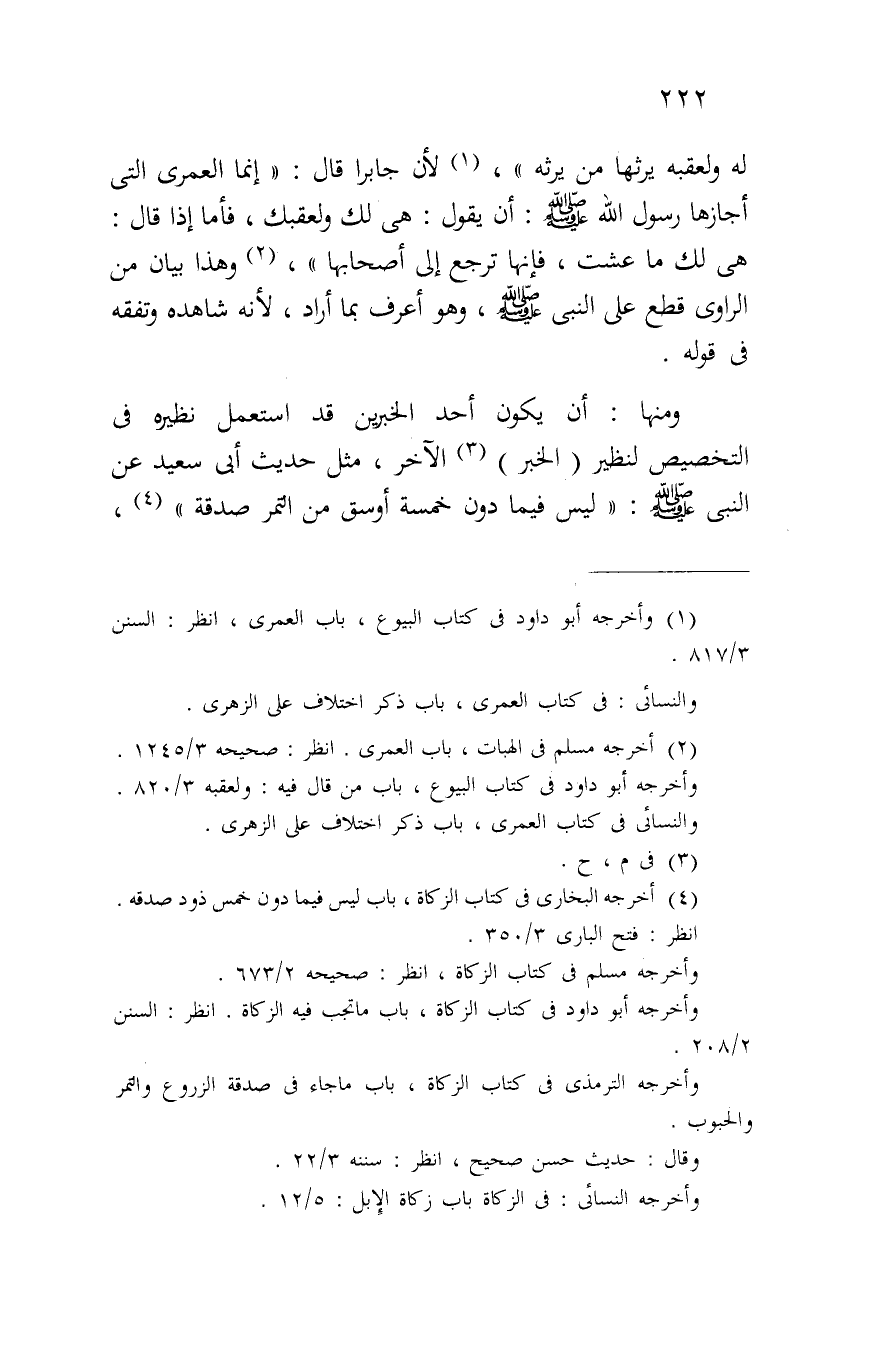 ٢٢٢
له ولعقبه يرثها من يرثه » ، (١) لأن جابرا قال : « إنما العمرى التى
أجازها رسول الله ﷺ : أن يقول : هى لك ولعقبك ، فأما إذا قال :
هى لك ما عشت ، فإنها ترجع إلى أصحابها » ، (٢) وهذا بيان من
الراوى قطع على النبى ﷺ ، وهو أعرف بما أراد ، لأنه شاهده وتفقه
فى قوله .
ومنها : أن يكون أحد الخبرين قد استعمل نظيره فى
التخصيص لنظير ( الخبر ) (٣) الآخر ، مثل حديث أبى سعيد عن
النبى ﷺ : « ليس فيما دون خمسة أوسق من التمر صدقة » (٤) ،
(١) وأخرجه أبو داود فى كتاب البيوع ، باب العمرى ، انظر : السنن
٨١٧/٣ .
والنسائى : فى كتاب العمرى ، باب ذكر اختلاف على الزهرى .
(٢) أخرجه مسلم فى الهبات ، باب العمرى . انظر : صحيحه ١٢٤٥/٣ .
وأخرجه أبو داود فى كتاب البيوع ، باب من قال فيه : ولعقبه ٨٢٠/٣ .
والنسائى فى كتاب العمرى ، باب ذكر اختلاف على الزهرى .
(٣) فى م ، ح .
(٤) أخرجه البخارى فى كتاب الزكاة ، باب ليس فيما دون خمس ذود صدقه .
انظر : فتح البارى ٣٥٠/٣ .
وأخرجه مسلم فى كتاب الزكاة ، انظر : صحيحه ٦٧٣/٢ .
وأخرجه أبو داود فى كتاب الزكاة ، باب ماتجب فيه الزكاة . انظر : السنن
٢٠٨/٢ .
وأخرجه الترمذى فى كتاب الزكاة ، باب ماجاء فى صدقة الزروع والتمر
والحبوب .
وقال : حديث حسن صحيح ، انظر : سننه ٢٢/٣ .
وأخرجه النسائى : فى الزكاة باب زكاة الإبل : ١٢/٥ .